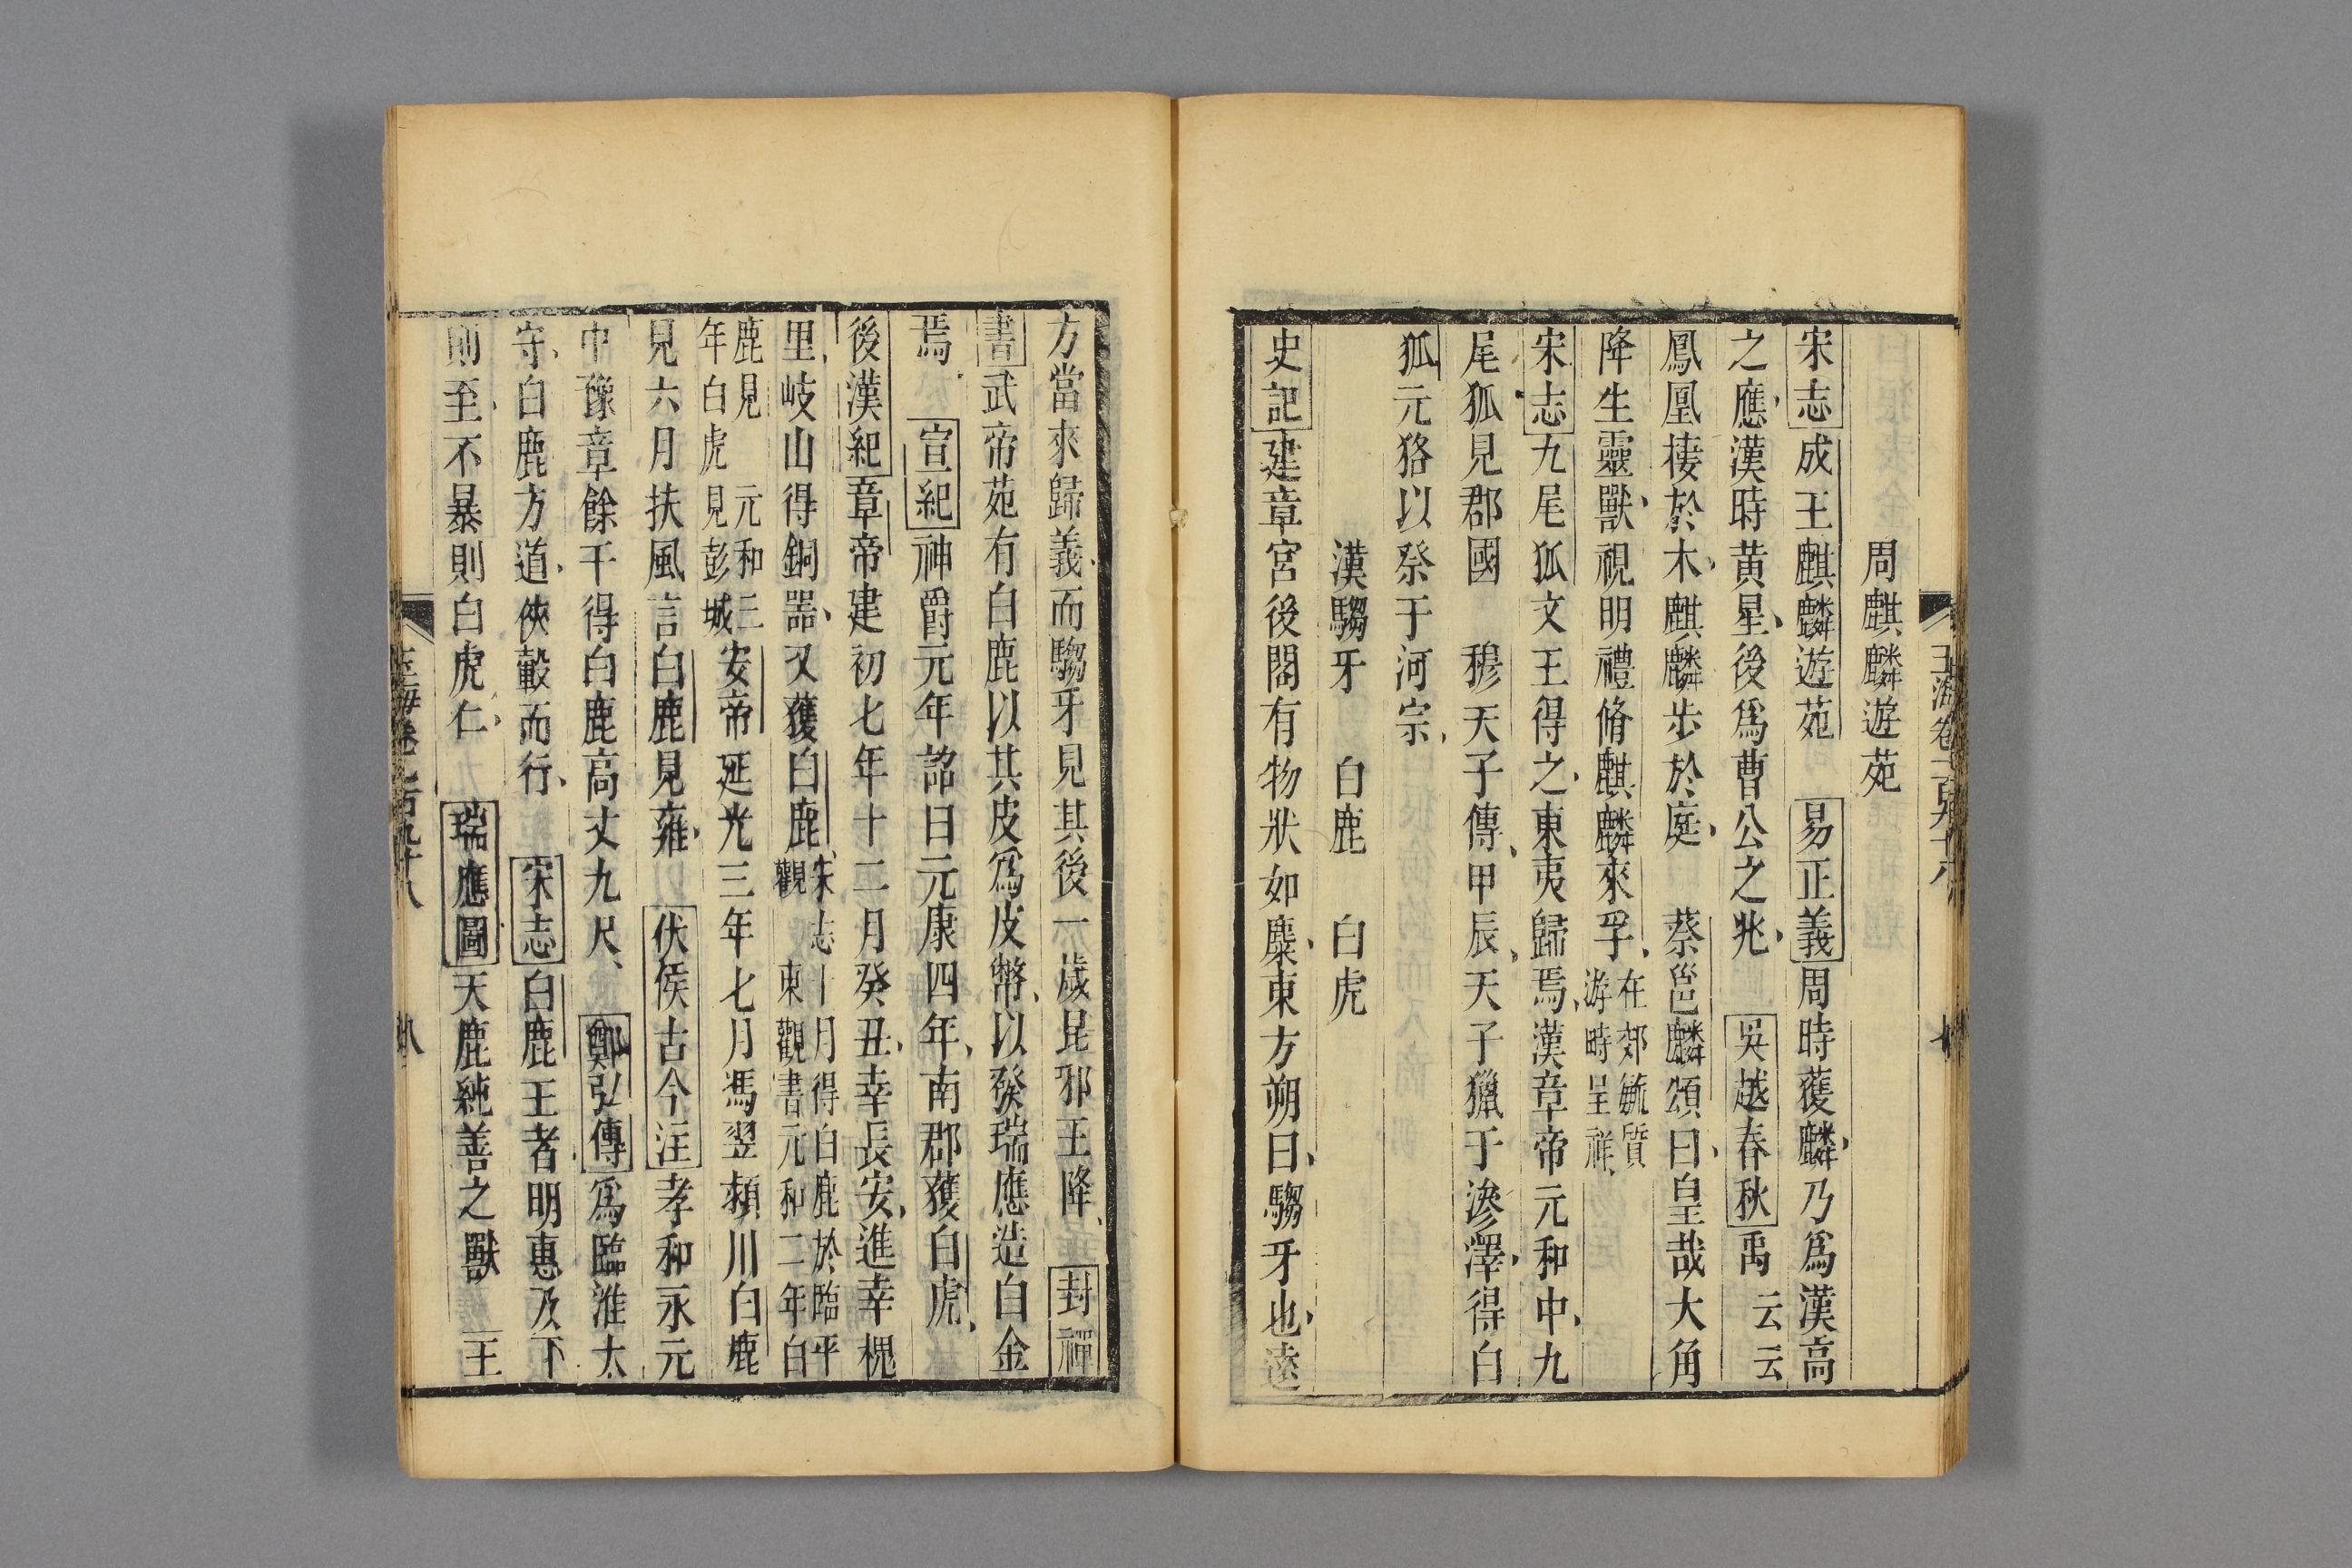 周麒麟遊苑
宋志成王麒麟遊苑 易正義周時獲麟乃爲漢高
之應漢時黃星後爲曹公之兆 吳越春秋禹云云
鳳凰棲於木麒麟步於庭 蔡邕麟頌曰皇哉大角
降生靈獸視明禮脩麒麟來孚在郊毓質
游時呈祥
宋志九尾狐文王得之東夷歸焉漢章帝元和中九
尾狐見郡國 穆天子傳甲辰天子獵于滲澤得白
狐元狢以祭于河宗
漢騶牙 白鹿 白虎
史記建章宮後閣有物狀如麋東方朔曰騶牙也遠
方當來歸義而騶牙見其後一歲昆邪王降 封禪
書武帝苑有白鹿以其皮爲皮幣以發瑞應造白金
焉 宣紀神爵元年詔曰元康四年南郡獲白虎
後漢紀章帝建初七年十二月癸丑幸長安進幸槐
里岐山得銅器又獲白鹿宋志十月得白鹿於臨平
觀 東觀書元和二年白
鹿見 元和三
年白虎見彭城安帝延光三年七月馮翌潁川白鹿
見六月扶風言白鹿見雍 伏侯古今注孝和永元
中豫章餘干得白鹿高丈九尺 鄭弘傳爲臨淮太
守白鹿方道俠轂而行 宋志白鹿王者明惠及下
則至不暴則白虎仁 瑞應圖天鹿純善之獸 王